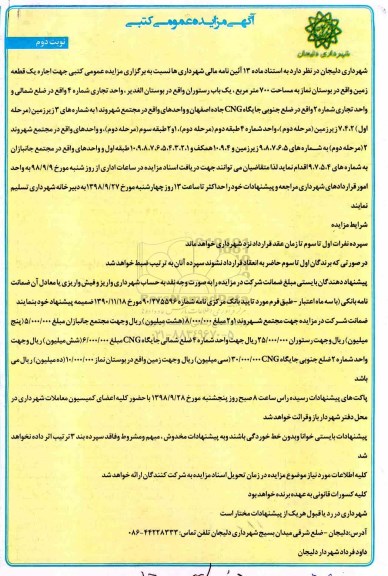 آگهی مزایده عمومی کتبی
نوبت دوم
شهرداری دلیجان
شهرداری دلیجان در نظر دارد به استناد ماده ۱۳ آئین نامه مالی شهرداری ها نسبت به برگزاری مزایده عمومی کتبی جهت اجاره یک قطعه
زمین واقع در بوستان نماز به مساحت ۷۰۰ متر مربع ، یک باب رستوران واقع در بوستان الغدیر ، واحد تجاری شماره ۴ واقع در ضلع شمالی و
واحد تجاری شماره ۲ واقع در ضلع جنوبی جایگاه CNG جاده اصفهان و واحدهای واقع در مجتمع شهروند ۱ به شماره های ۳ زیرزمین (مرحله
اول) ۷،۴،۲ زیرزمین (مرحله دوم) ، واحد شماره ۴ طبقه دوم (مرحله دوم)، ۱و۲ طبقه سوم (مرحله دوم)، و واحدهای واقع در مجتمع شهروند
۲ (مرحله دوم) به شماره های ۹،۸،۷،۶،۵ زیرزمین و ۱۰،۹،۴ همکف و ۱۰،۹،۸،۷،۶،۵،۴،۳،۲،۱ طبقه اول و واحدهای واقع در مجتمع جانبازان
به شماره های ۹،۷،۵،۴ اقدام نماید لذا متقاضیان می توانند جهت دریافت اسناد مزایده در ساعات اداری از روز شنبه مورخ ۹۸/۹/۹ به واحد
امور قراردادهای شهرداری مراجعه و پیشنهادات خود را حداکثر تا ساعت ۱۳ روز چهارشنبه مورخ ۱۳۹۸/۹/۲۷ به دبیرخانه شهرداری تسلیم
نمایند
شرایط مزایده
سپرده نفرات اول تا سوم تا زمان عقد قرارداد نزد شهرداری خواهد ماند
در صورتی که برندگان اول تا سوم حاضر به انعقاد قرارداد نشوند سپرده آنان به ترتیب ضبط خواهد شد
پیشنهاد دهندگان بایستی مبلغ ضمانت شرکت در مزایده را به صورت وجه نقد به حساب شهرداری واریز و فیش واریزی یا معادل آن ضمانت
نامه بانکی (با سه ماه اعتبار – طبق فرم مورد تایید بانک مرکزی نامه شماره ۹۰/۲۷۵۵۹۶ مورخ ۱۳۹۰/۱۱/۱۸ ضمیمه پیشنهاد خود بنمایند
ضمانت شرکت در مزایده جهت مجتمع شهروند (۱و۲ مبلغ ۸/۰۰۰/۰۰۰ (هشت میلیون) ریال وجهت مجتمع جانبازان مبلغ ۵/۰۰۰/۰۰۰ (پنج
میلیون) ریال وجهت رستوران ۲۵/۰۰۰/۰۰۰ ریال جهت واحد شماره ۴ ضلع شمالی جایگاه CNG مبلغ ۶/۰۰۰/۰۰۰ (شش میلیون) ریال وجهت
واحد شماره ۲ ضلع جنوبی جایگاه CNG ۳۰/۰۰۰/۰۰۰ (سی میلیون) ریال و جهت زمین واقع در بوستان نماز ۱۰/۰۰۰/۰۰۰ (ده میلیون) ریال می
باشد
پاکت های پیشنهادات رسیده راس ساعت ۸ صبح روز پنجشنبه مورخ ۱۳۹۸/۹/۲۸ با حضور کلیه اعضای کمیسیون معاملات شهرداری در
محل دفتر شهردار باز و قرائت خواهد شد
پیشنهادات بایستی خوانا وبدون خط خوردگی باشند وبه پیشنهادات مخدوش ، مبهم ومشروط وفاقد سپرده بند ۳ ترتیب اثر داده نخواهد
شد
کلیه اطلاعات مورد نیاز موضوع مزایده در زمان تحویل اسناد مزایده به شرکت کنندگان ارائه خواهد شد
کلیه کسورات قانونی به عهده برنده خواهد بود
شهرداری در رد یا قبول هریک از پیشنهادات مختار است
آدرس:دلیجان – ضلع شرقی میدان بسیج شهرداری دلیجان تلفن تماس: ۴۴۲۲۸۳۳۳-۰۸۶
داود فرداد شهردار دلیجان